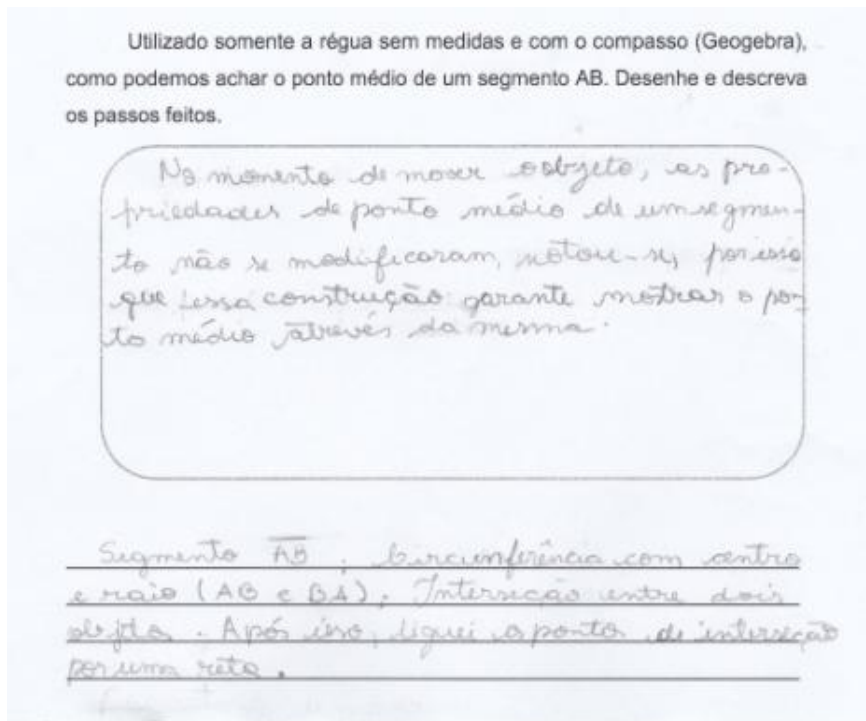 Utilizado somente a régua sem medidas e com o compasso (Geogebra),
como podemos achar o ponto médio de um segmento AB. Desenhe e descreva
os passos feitos.
No momento de mover o objeto, as pro-
priedades de ponto médio de um segmen-
to não se modificaram, notou-se, por isso
que essa construção garante mostrar o pon-
to médio através da mesma.
Segmento AB, Circunferência com centro
e raio (AB e BA), Interseção entre dois
objetos. Após isso, liguei os pontos de interseção
por uma reta.